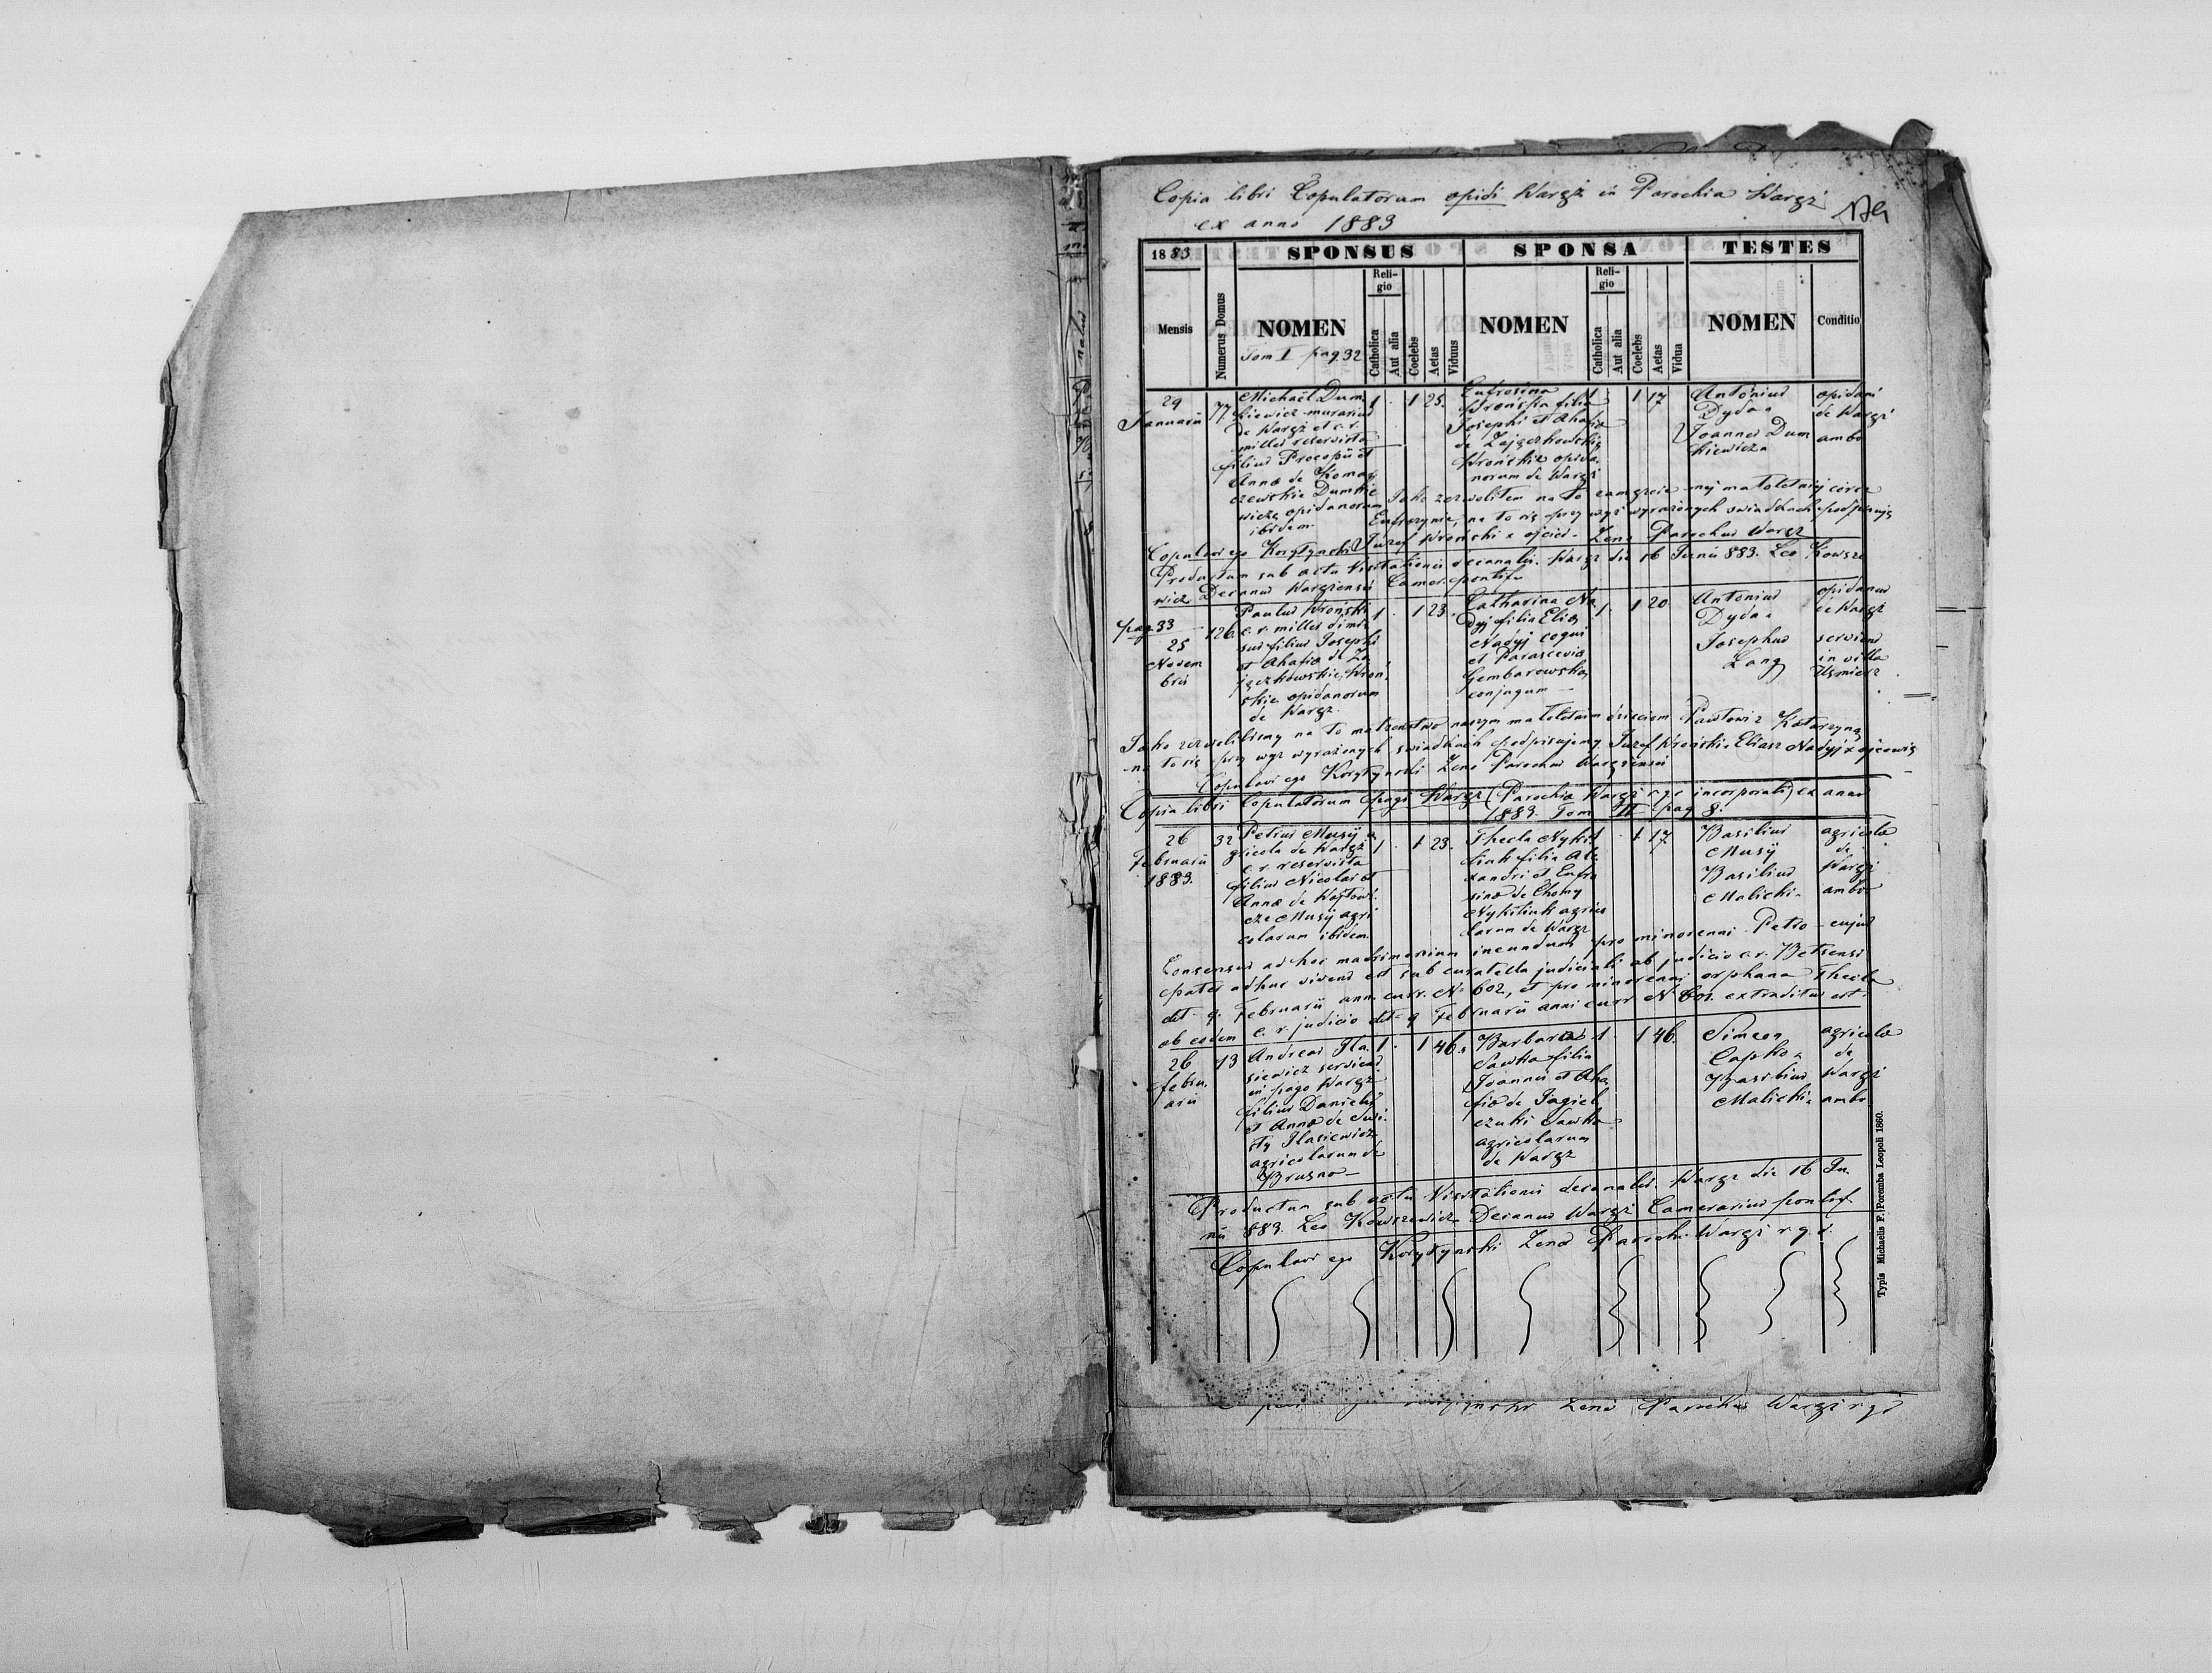 Copia libri Copulatorum opidi Waręż in Parochia Waręż
ex anno 1883
1883
SPONSUS
SPONSA
TESTES
Mensis
Numerus Domus
NOMEN
Tom I pag 32
Religio
Catholica
Aut alia
Coelebs
Aetas
Viduus
NOMEN
Religio
Catholica
Aut alia
Coelebs
Aetas
Vidua
NOMEN
Conditio
29
Januarii
77.
Michaël Dum
kiewicz murarius
de Waręż et c. r.
miles reservista
filius Procopii et
Anna de Komar
czewskie Dumkie
wicze opidanorum
ibidem.
1 . 1 25.
Eufrosina
Wrońska filia
Josephi et Ahafia
de Zajączkowskie
Wrońskie opida
norum de Waręż
1 1 17
Antonius
Dyda
Joannes Dum
kiewicz
opidani
de Waręż
ambo
Jako zezwoliłem na to zamęzcie mej małoletniej córce
Eufrozynie, na to się przy wyż wyrażonych swiadkach podpisuję
Józef Wroński x ojciec.
Copulavi ego Korytynski Zeno Parochus Waręż
Productum sub actu Visitationis decanalis. Waręż die 16 Junii 883. Leo Kowsze
wicz Decanus Waręzensis Camer. pontif.
pag 33
25
Novem
bris
126.
Paulus Wroński
c. r. miles dimis
sus filius Josephi
et Ahafia de Za
jączkowskie Wroń
skie opidanorum
de Waręż.
1 . 1 23.
Catharina Na
dyj filia Eliæ
Nadyj coqui
et Parascevia
Gembarowska
conjugum
1. 1 20
Antonius
Dyda
Josephus
Lang
opidanus
de Waręż
serviens
in villa
Uśmierz
Jako zezwolilismy na to małzenstwo naszym małoletnim dzieciom Pawłowi z Katarzyną
na to się przy wyż wyrażonych swiadkach podpisujemy Józef Wroński x Eliasz Nadyj x ojcowie
Copulavi ego Korytynski Zeno Parochus Waręzensis
Copia libri Copulatorum pagi Waręż (Parochia Waręż r. g. c. incorporati) ex anno
1883. Tom II pag 8.
26
Februarii
1883.
32
Petrus Musij a
gricola de Waręż
c. r. reservista
filius Nicolai et
Anna de Wojtowi
cze Musij agri
colarum ibidem.
1 . 1 23.
Thecla Nyki
fink filia Ale
xandri et Eufro
sina de Chomy
agrico
larum de Waręż
1 . 1 17
Basilius
Musij
Basilius
Malicki
agricola
de
Waręż
ambo
Consensus ad hoc madrimonium ineundum pro minorenni Petro cujus
pater adhuc vivens est sub curatella judiciali ab judicio c. r. Belzensi
dtt. 9. Februarii anni curr. N. 602, et pro minorenni orphana Thecla
ab eodem c. r. judicio dtt. 9 Februarii anni curr N 601. extraditus est.
26
Febru
arii
13
Andreas Ila
siewicz serviens
in pago Waręż
filius Danielis
et Anna de Swi
sty Ilasiewicz
agricolarum de
Brusno
1 . 1 46.
Barbara
Sawka filia
Joannis et Aha
fia de Jagiel
czuki Sawka
agricolarum
de Waręż
1 . 1 46.
Simeon
Capko
Basilius
Malicki
agricola
de
Waręż
ambo.
Productum sub actu Visitationis decanalis. Waręż die 16 Ju
nii 883. Leo Kowszewicz Decanus Waręż Camerarius pontif.
Copulavi ego Korytynski Zeno Paroch. Waręż r. g. c.
Zeno Parochus Waręż r g c
Typis Michaelis F. Poremba Leopoli 1860.